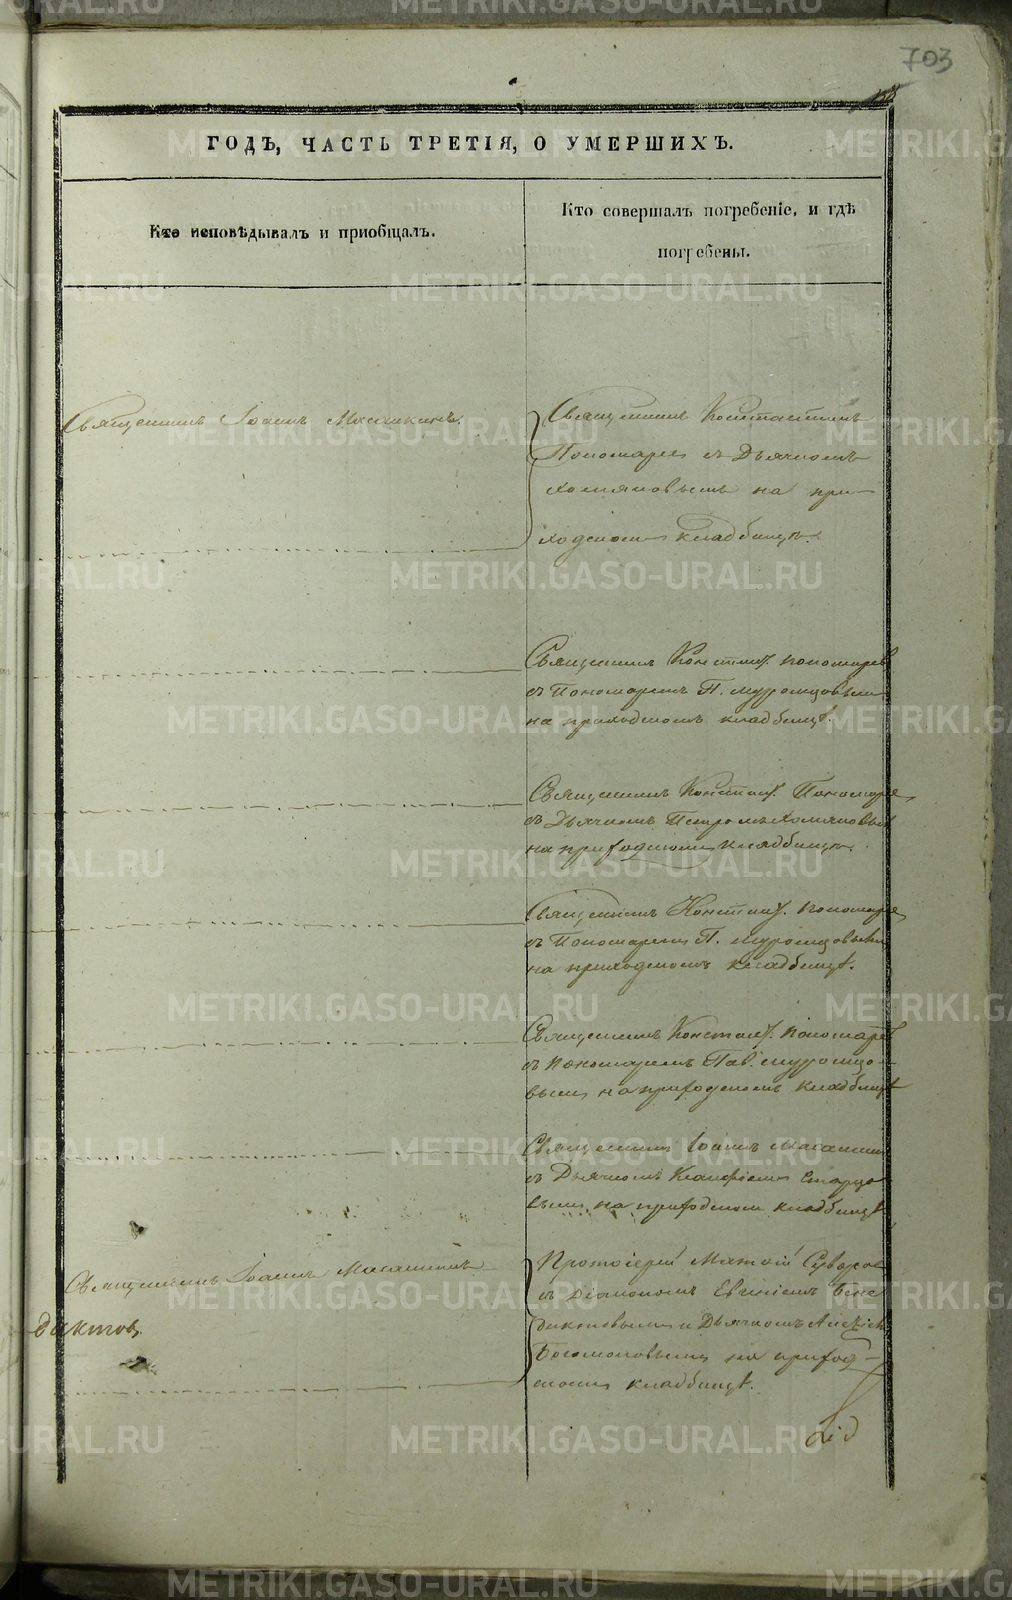 703
ГОДЪ, ЧАСТЬ ТРЕТІЯ, О УМЕРШИХЪ.
Кто исповѣдывалъ и пріобщалъ.
Кто совершалъ погребеніе, и гдѣ
погребены.
Священникъ Іоаннъ
Священникъ Константинъ
Пономарев съ Дьячкомъ
Хомяковымъ на при-
ходскомъ кладбищѣ.
Священникъ Констант. Пономарев
съ Пономаремъ П. Муромцовымъ
на приходскомъ кладбищѣ.
Священникъ Констант. Пономарев
съ Дьячкомъ Петромъ Хомяковым
на приходскомъ кладбищѣ.
Священникъ Констант. Пономарев
съ Пономаремъ П. Муромцовымъ
на приходскомъ кладбищѣ.
Священникъ Констант. Пономарев
съ Пономаремъ Пав. Муромцо-
вымъ на приходскомъ кладбищѣ
Священникъ Іоаннъ
съ Дьячкомъ Старцо
вымъ на приходском кладбищѣ
Священникъ Іоаннъ
Протоіерей Суворов
съ Діакономъ Евгеніемъ Бене
диктовымъ и Дьячкомъ Алексѣем
диктов
Богомоловымъ на приход-
скомъ кладбищѣ.
METRIKI.GASO-URAL.RU